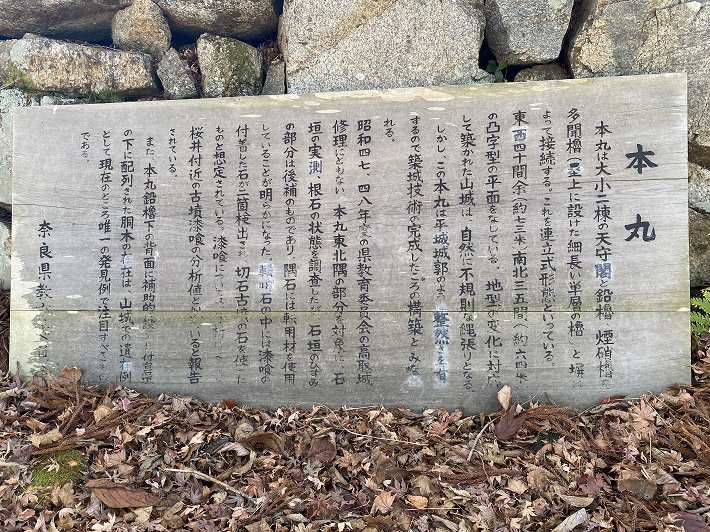 本丸
本丸は大小二棟の天守閣と鉛櫓、煙硝櫓を
多聞櫓（塁上に設けた細長い単層の櫓）と塀に
よって接続する。これを連立式形態といっている。
東西四十間余（約七三米）南北三五間（約六四米）
の凸字型の平面をなしている。地型の変化に対応
して築かれた山城は、自然に不規則な縄張りとなる。
しかし、この本丸は平城城郭の 整然さを有
するので、築城技術の完成したころの構築とみな
れる。
昭和四七、四八年 の県教育委員会の高取城
修理にともない、本丸東北隅の部分を対象に、石
垣の実測、根石の状態を調査した 石垣のひずみ
の部分は後補のものであり、隅石には転用材を使用
していることが明らかになった。転用石の中には漆喰の
付着した石が二箇検出され、切石古墳の石を使った
ものと想定されている。漆喰に
桜井付近の古墳漆喰の分析値と いると報告
されている。
また、本丸鉛櫓下の背面に補助的 付台
の下に配列された胴木の存在は、山城での遺存例
として現在のところ唯一の発見例で注目すべき
である。
奈良県教